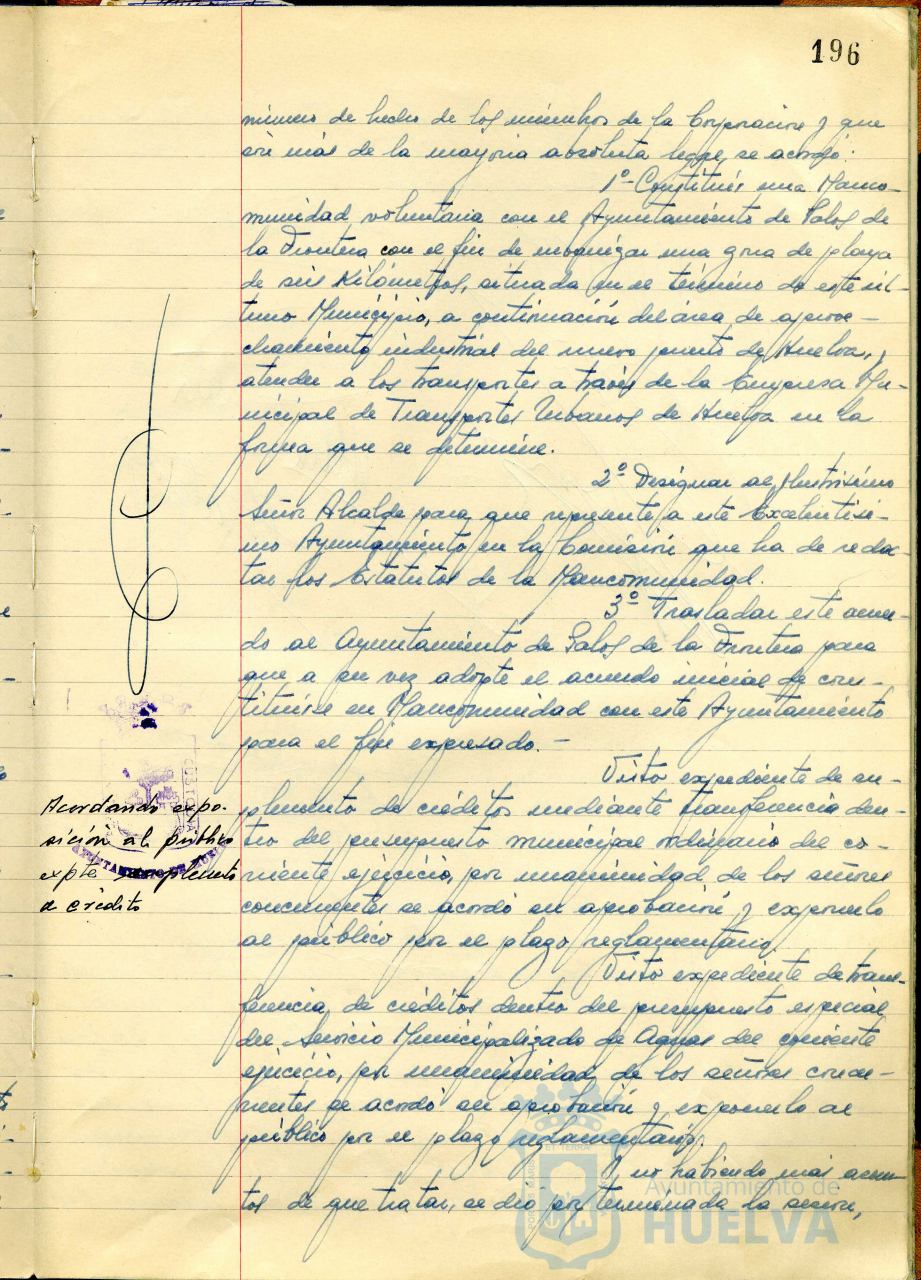 196
número de hecho de los miembros de la Corporación y que
son más de la mayoría absoluta legal, se acordó:
1º- Constituir una Manco-
munidad voluntaria con el Ayuntamiento de Palos de
la Frontera con el fin de urbanizar una zona de playa
de seis Kilómetros, situada en el término de este úl-
timo Municipio, a continuación del área de aprove-
chamiento industrial del nuevo puerto de Huelva, y
atender a los transportes a través de la Empresa Mu-
nicipal de Transportes Urbanos de Huelva en la
forma que se determine.
2º Designar al Ilustrísimo
Señor Alcalde para que represente a este Excelentísi-
mo Ayuntamiento en la Comisión que ha de redac-
tar los Estatutos de la Mancomunidad.
3º Trasladar este acuer-
do al Ayuntamiento de Palos de la Frontera para
que a su vez adopte el acuerdo inicial de cons-
tituirse en Mancomunidad con este Ayuntamiento
para el fin expresado. -
Acordando expo-
sición al público
expte suplemento
de crédito
Visto expediente de su-
plemento de créditos mediante transferencia den-
tro del presupuesto municipal ordinario del co-
rriente ejercicio, por unanimidad de los señores
concurrentes se acordó su aprobación y exponerlo
al público por el plazo reglamentario.
Visto expediente de trans-
ferencia de créditos dentro del presupuesto especial
del Servicio Municipalizado de Aguas del corriente
ejercicio, por unanimidad de los señores concu-
rrentes se acordó su aprobación y exponerlo al
público por el plazo reglamentario.
Y no habiendo más asun-
tos de que tratar, se dió por terminada la sesión,
AYUNTAMIENTO DE HUELVA
Ayuntamiento de
HUELVA